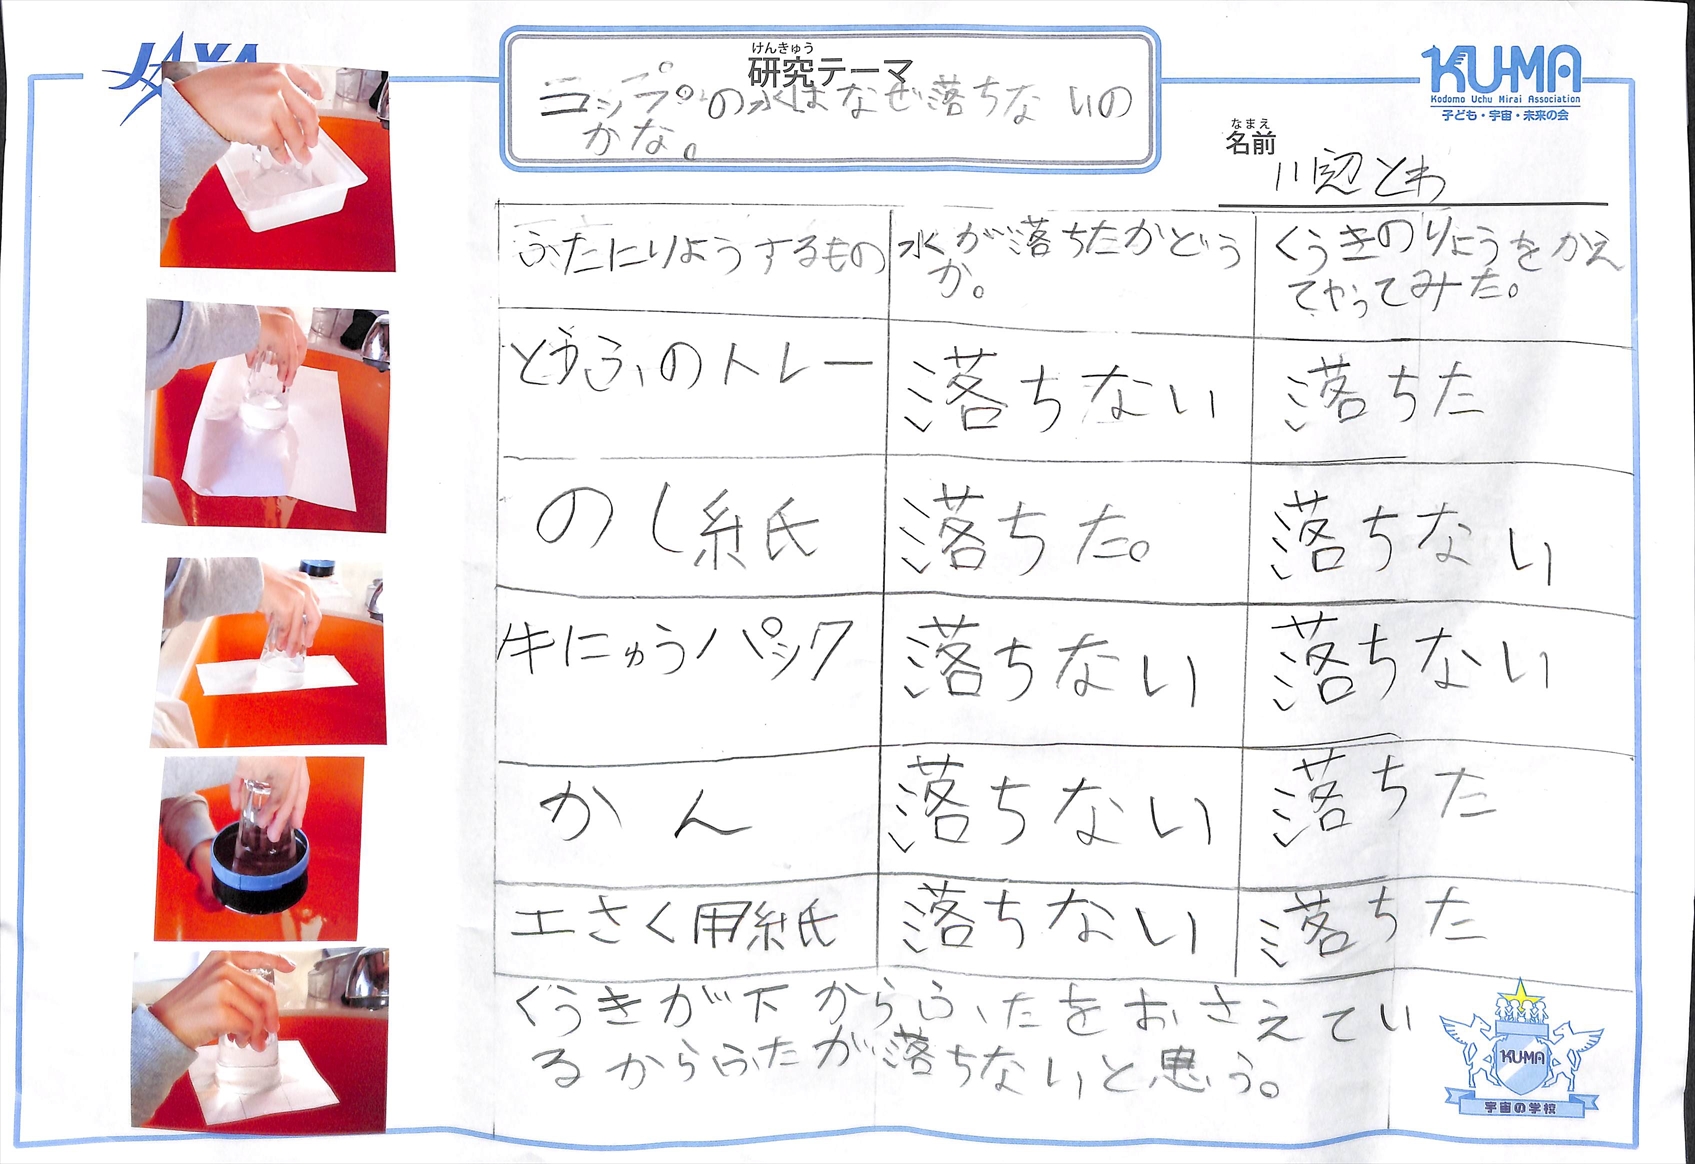 けんきゅう
研究テーマ
コップの水はなぜ落ちないの
かな。
KU-MA
Kodomo Uchu Mirai Association
子ども・宇宙・未来の会
なまえ
名前
川辺とわ
ふたにりようするもの
水が落ちたかどう
か。
くうきのりょうをかえ
てやってみた。
とうふのトレー
落ちない
落ちた
のし紙
落ちた。
落ちない
牛にゅうパック
落ちない
落ちない
かん
落ちない
落ちた
工さく用紙
落ちない
落ちた
くうきが下からふたをおさえてい
るからふたが落ちないと思う。
KU-MA
宇宙の学校